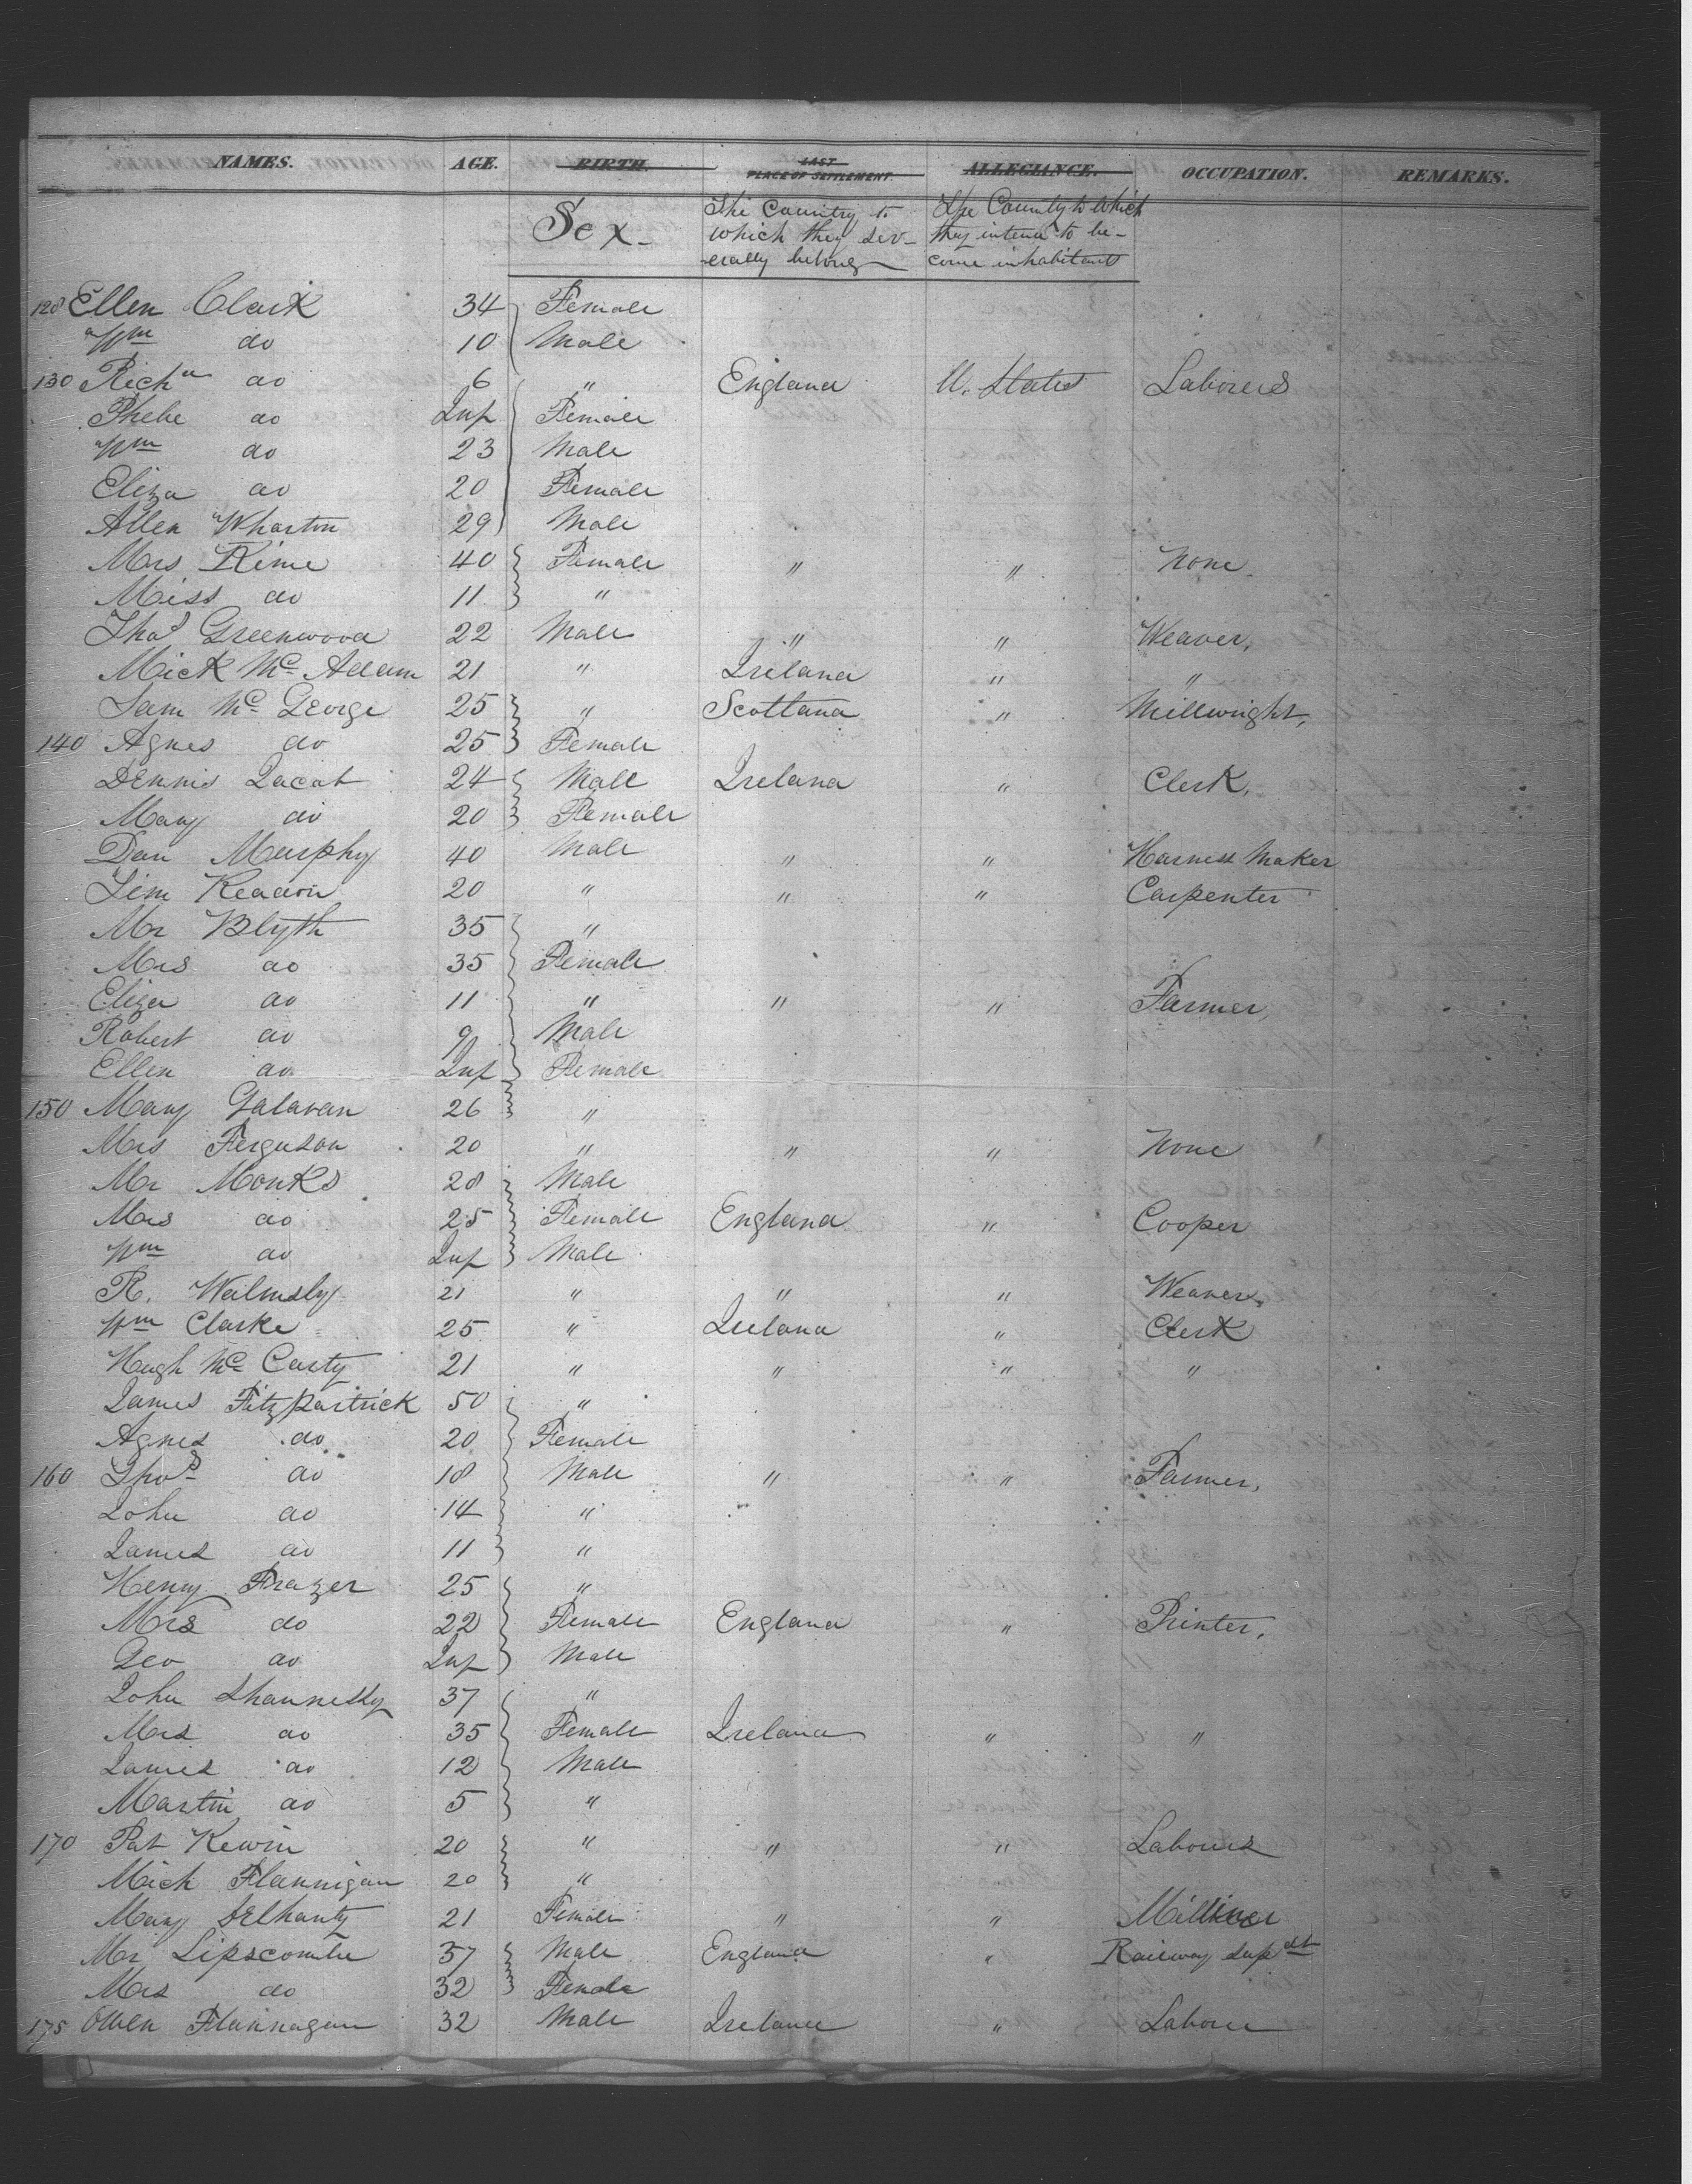 NAMES. AGE. BIRTH. LAST PLACE OF SETTLEMENT. ALLEGIANCE. OCCUPATION. REMARKS.
Sex- The Country to which they sev- -erally belong The Country to which they intend to be- come inhabitants
128 Ellen Clark 34 Female
Wm do 10 Male
130 Richd do 6 " England U. States Laborers
Phebe do Inf Female
Wm do 23 Male
Eliza do 20 Female
Allen Wharton 29 Male
Mrs Kime 40 Female " " None
Miss do 11 "
Thos Greenwood 22 Male " " Weaver,
Mick Mc Adam 21 " Ireland " "
Sam Mc George 25 " Scotland " Millwright,
140 Agnes do 25 Female
Dennis 24 Male Ireland " Clerk,
Mary do 20 Female
Dan Murphy 40 Male " " Harness Maker
20 " " " Carpenter
Mr Blyth 35 "
Mrs do 35 Female
Eliza do 11 " " " Farmer,
Robert do 9 Male
Ellen do Inf Female
150 Mary Galavan 26 "
Mrs Ferguson 20 " " " None
Mr Monks 28 Male
Mrs do 25 Female England " Cooper
Wm do Inf Male
R. Walmsly 21 " " " Weaver,
Wm Clarke 25 " Ireland " Clerk
Hugh Mc Carty 21 " " " "
James Fitzpartrick 50 "
Agnes do 20 Female
160 Thos do 18 Male " " Farmer,
John do 14 "
James do 11 "
Henry Frazer 25 "
Mrs do 22 Female England " Printer,
Geo do Inf Male
John Shannessy 37 "
Mrs do 35 Female Ireland " "
James do 12 Male
Martin do 5 "
170 Pat Kewin 20 " " " Labourers
Mick Flannigan 20 "
Mary Delhanty 21 Female " " Milliner
Mr Lipscombe 37 Male England " Railway Supdt
Mrs do 32 Female
175 Owen Flannagan 32 Male Ireland " Laborer